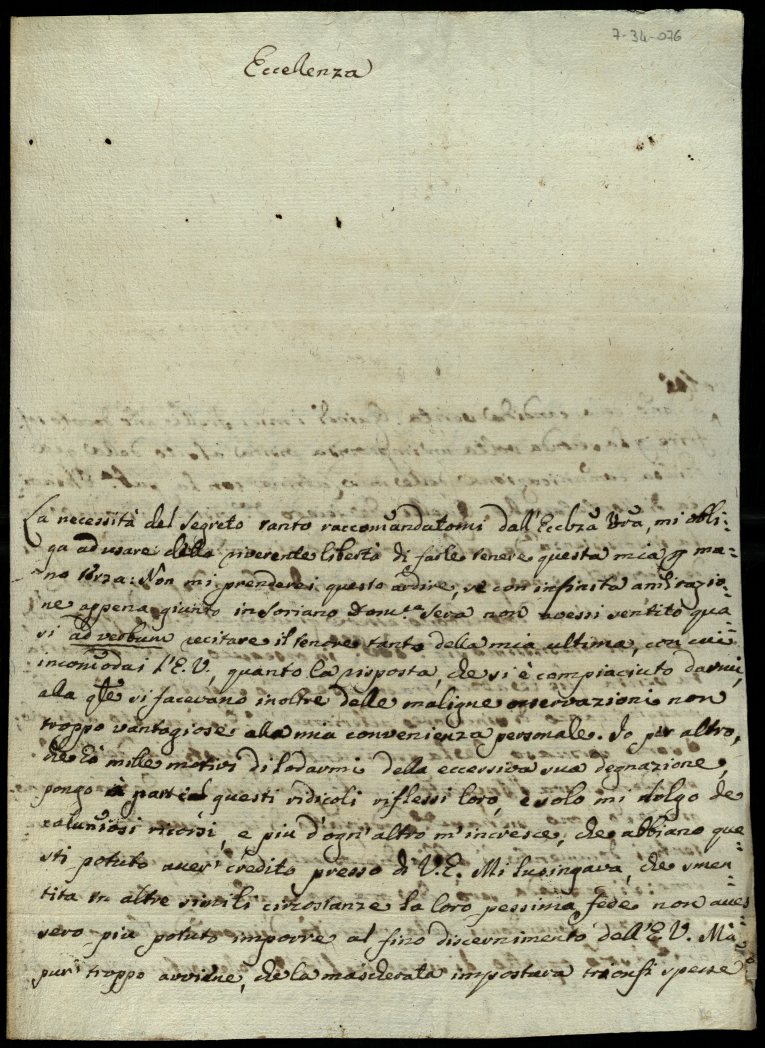 7-34-076
Eccellenza
La necessità del segreto tanto raccomandatomi dall'Eccẽza Vrã, mi obbli-
ga ad usare della riverente libertà di farle tenere questa mia p ma-
no terza: Non mi prenderei questo ardire, se con infinita am̃irazio-
ne appena giunto in Soriano Sera non avessi sentito qua-
si ad verbum recitare il tenore tanto della mia ultima, con cui
incom̃odai l'E.V., quanto la risposta, che si è compiaciuto darmi,
alla qle si facevano inoltre delle maligne osservazioni non
troppo vantagiose alla mia convenienza personale. Io per altro,
che ò mille motivi di lodarmi della eccessiva sua degnazione,
pongo questi ridicoli riflessi loro, e solo mi dolgo de
caluñiosi ricorsi, e più d'ogn'altro m'incresce, che abbiano que-
sti potuto aver credito presso di V.E. Mi lusingava, che smen-
tita in altre simili circostanze la loro pessima fede non aves-
sero più potuto imporre al fino discernimento dell'E.V. Ma
pur troppo avviene, che la mascherata impostura trionfi spesse